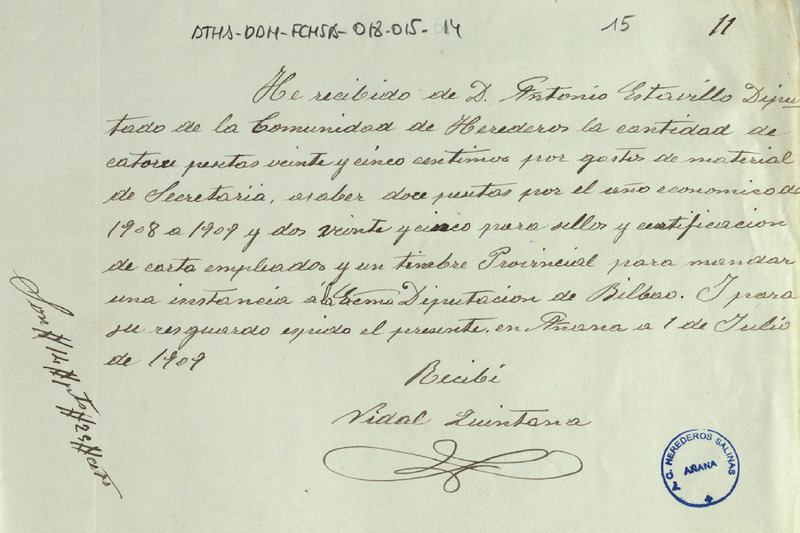 ATHA-DDM-FCHSA-018-015-14
15
11
He recibido de D. Antonio Estavillo Dipu
tado de la Comunidad de Herederos la cantidad de
catorce pesetas veinte y cinco centimos por gastos de material
de Secretaria, asaber doce pesetas por el año economico de
1908 a 1909 y dos veinte y cinco para sellos y certificacion
de carta empleados y un timbre Provincial para mandar
una instancia á la Diputacion de Bilbao. I para
su resguardo espido el presente. en Añana a 1 de Julio
de 1909
Recibí
Vidal Quintana
Son #14# pts #25# cts
C. HEREDEROS SALINAS
AÑANA